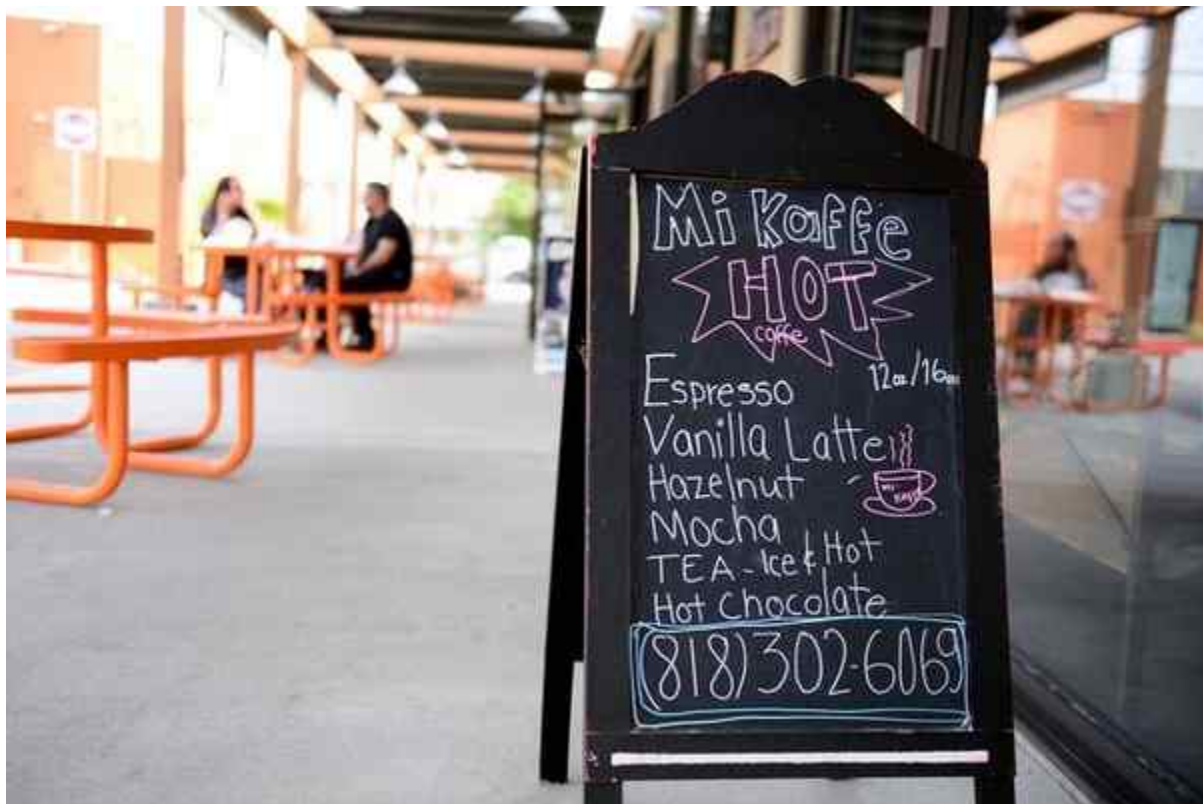 Mi Kaffe
HOT
coffe
12oz/16oz
Espresso
Vanilla Latte
Hazelnut
Mi Kaffe
Mocha
TEA - Ice & Hot
Hot Chocolate
(818)302-6069